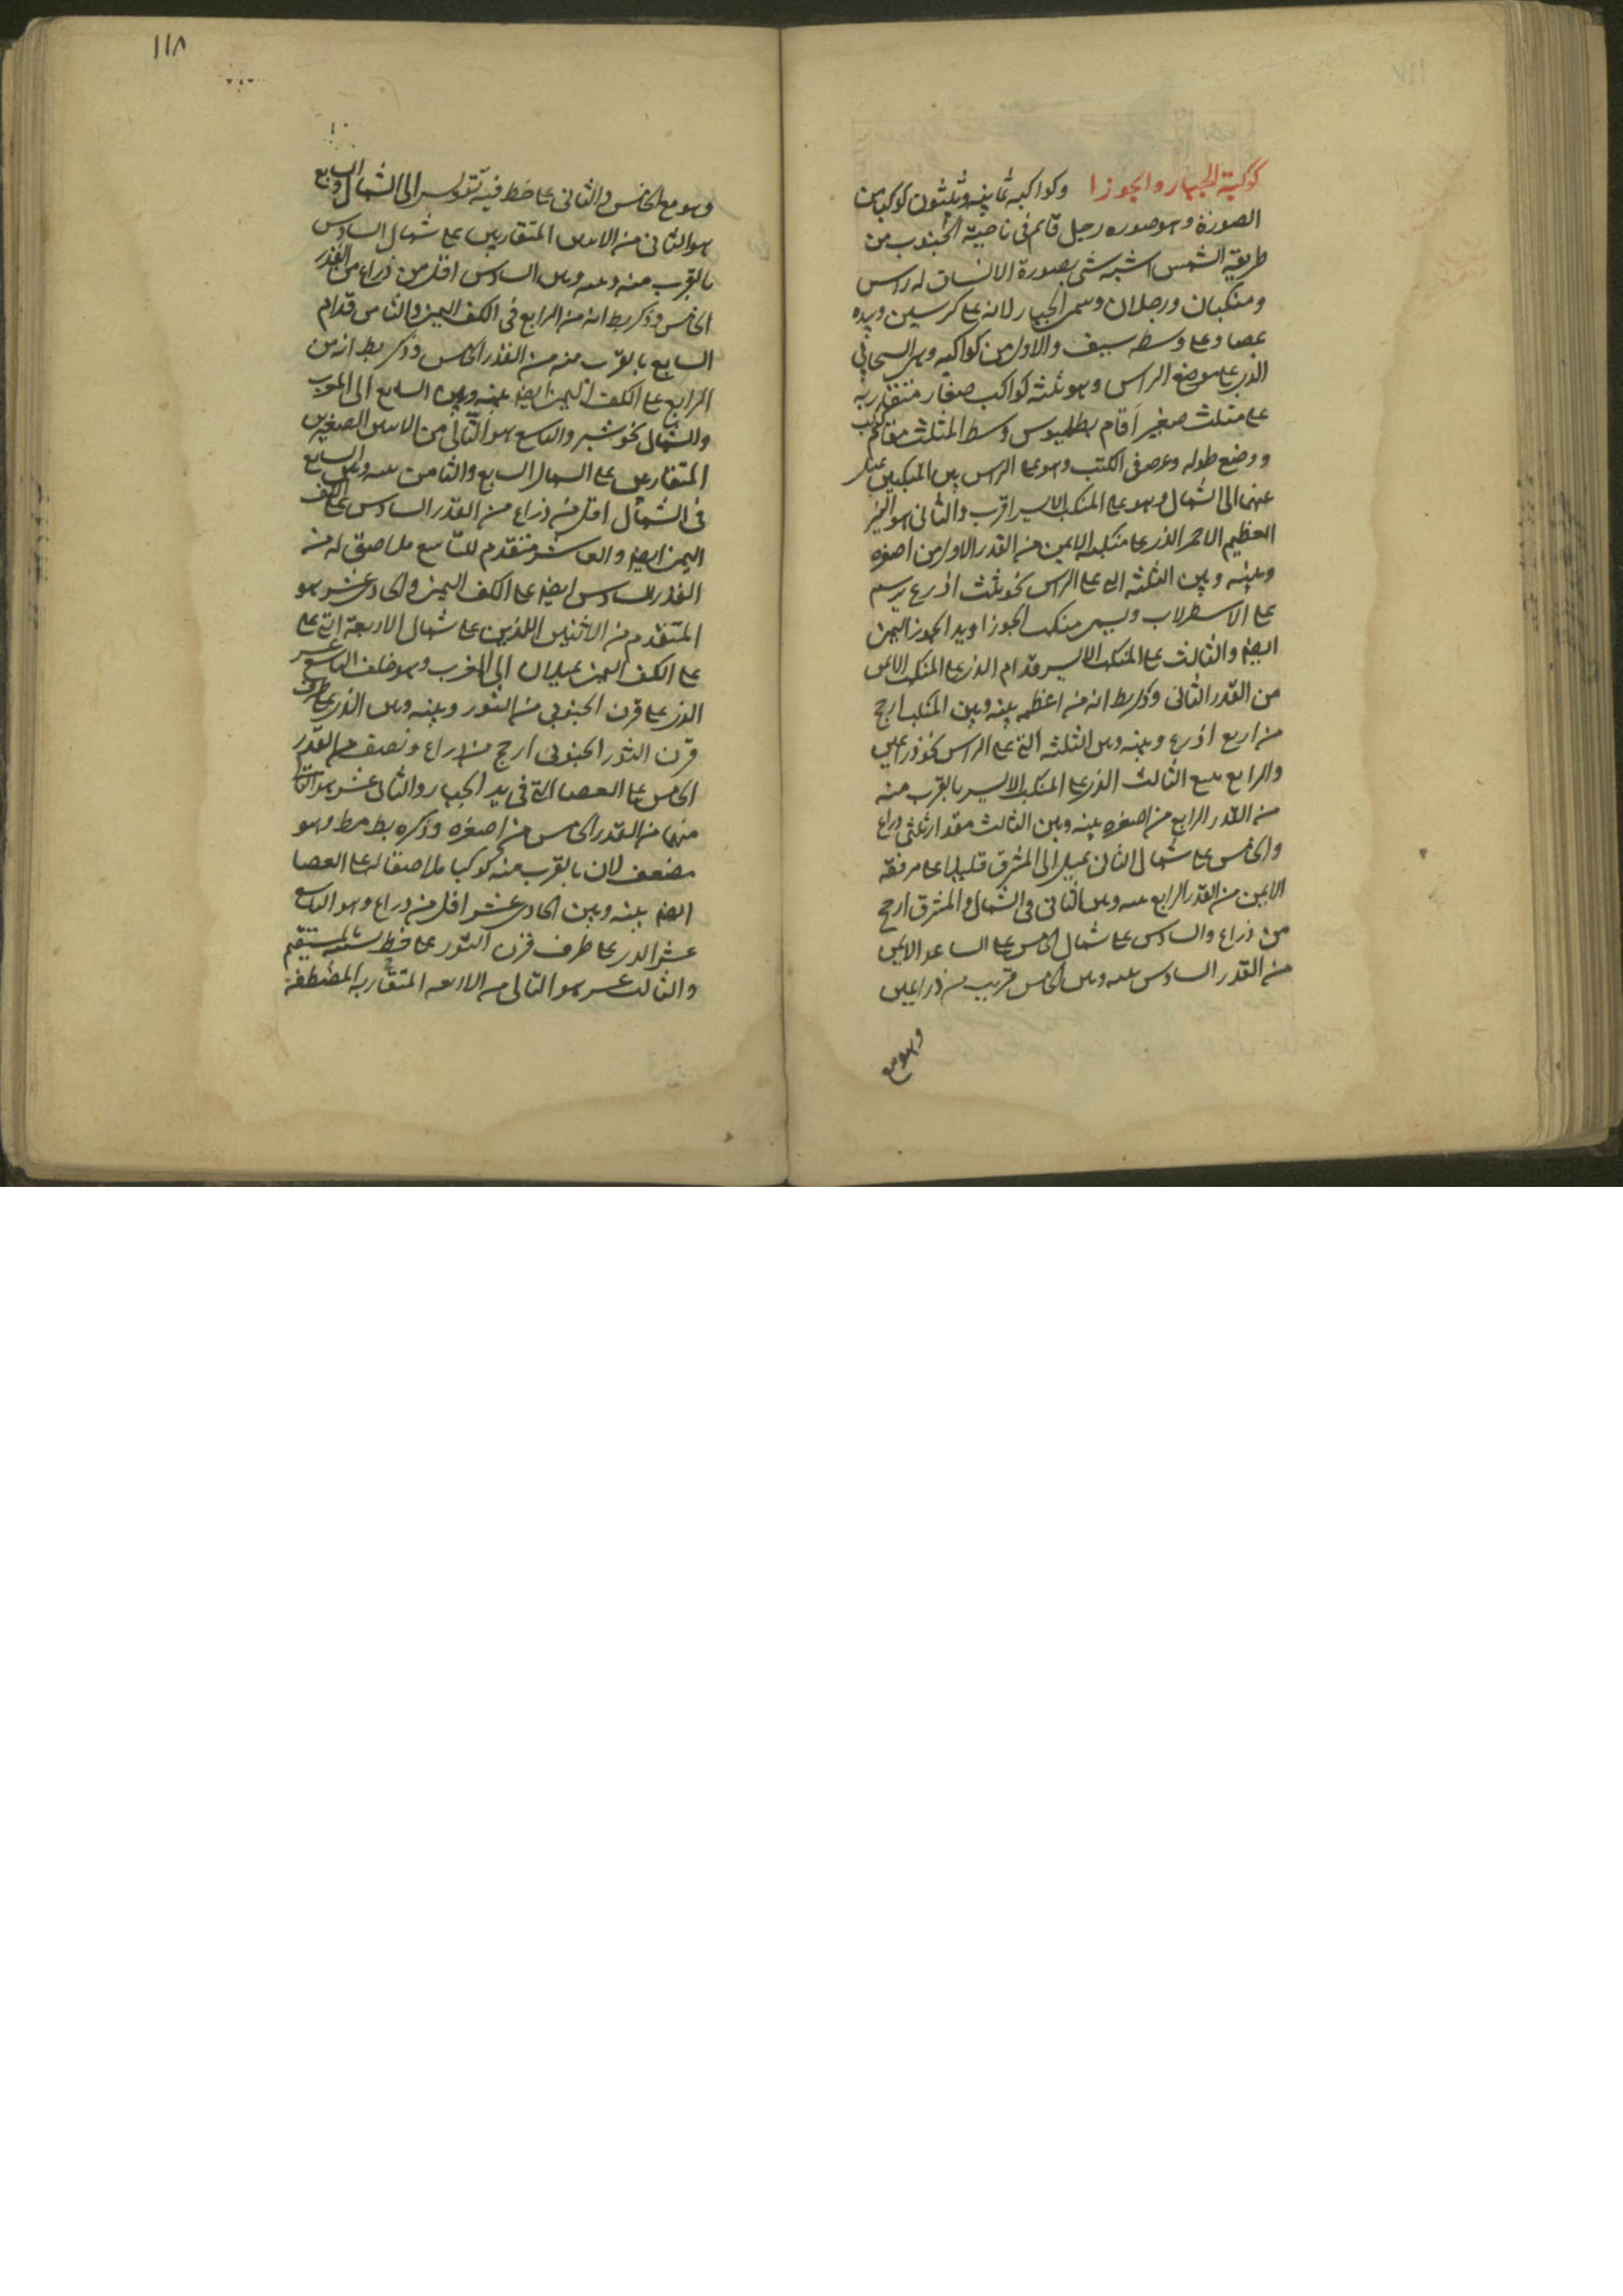 كوكبة الجبار والجوزا وكواكبه ثمانية وثلثون كوكبا من
الصورة وهو صوره رجل قائم فى ناحية الجنوب من
طريقة الشمس اشبه شى بصورة الانسان له راس
ومنكبان ورجلان وسمى الجبار لانه على كرسين وبيده
عصا وعلى وسطه سيف والاول من كواكبه هو السحابى
الذى على موضع الراس وهو ثلثه كواكب صغار متقاربه
على مثلث صغير اقام بطلميوس وسط المثلث مقام كوكب
ووضع طوله وعرضه فى الكتب وهو على الراس بين المنكبين يميل
عنهما الى الشمال وهو على المنكب الايسر اقرب والثانى هو النير
العظيم الاحمر الذى على منكبه الايمن من القدر الاول من اصغره
وبينه وبين الثلثه التى على الراس نحو ثلث اذرع يرسم
على الاسطرلاب ويسمى منكب الجوزا ويد الجوزا اليمنى
ايضا والثالث على المنكب الايسر قدام الذى على المنكب الايمن
من القدر الثانى وذكر بط انه من اعظمه بينه وبين المنكب ارجح
من اربع اذرع وبينه وبين الثلثه التى على الراس نحو ذراعين
والرابع يتبع الثالث الذى على المنكب الايسر بالقرب منه
من القدر الرابع من اصغره بينه وبين الثالث مقدار ثلثى ذراع
والخامس على شمال الثانى يميل الى المشرق قليلا على مرفقه
الايمن من القدر الرابع بينه وبين الثانى فى الشمال والمشرق ارجح
من ذراع والسادس على شمال الخامس على الساعد الايمن
من القدر السادس بينه وبين الخامس قريب من ذراعين
وهو مع
١١٨
وهو مع الخامس والثانى على خط فيه تقويس الى الشمال والسابع
هو الثانى من الاثنين المتقاربين على شمال السادس
بالقرب منه وبينه وبين السادس اقل من ذراع من القدر
الخامس وذكر بط انه من الرابع فى الكف اليمنى والثامن قدام
السابع بالقرب منه من القدر الخامس وذكر بط انه من
الرابع على الكف اليمنى ايضا بينه وبين السابع الى المغرب
والشمال نحو شبر والتاسع هو التالى من الاثنين الصغيرين
المتقاربين على شمال السابع والثامن بينه وبين السابع
فى الشمال اقل من ذراع من القدر السادس على الكف
اليمنى ايضا والعاشر متقدم للتاسع ملاصق له من
القدر السادس ايضا على الكف اليمنى والحادى عشر هو
المتقدم من الاثنين اللذين على شمال الاربعة التى على
على الكف اليمنى يميلان الى المغرب وهو خلف التاسع عشر
الذى على قرن الجنوبى من الثور وبينه وبين الذى على طرف
قرن الثور الجنوبى ارجح من ذراع ونصف من القدر
الخامس على العصا التى فى يد الجبار والثانى عشر هو التالى
منهما من القدر الخامس من اصغره وذكره بط مط وهو
مضعف لان بالقرب منه كوكبا ملاصقا له على العصا
ايضا بينه وبين الحادى عشر اقل من ذراع وهو التاسع
عشر الذى على طرف قرن الثور على خط مستقيم
والثالث عشر هو التالى من الاربعه المتقاربه المصطفة